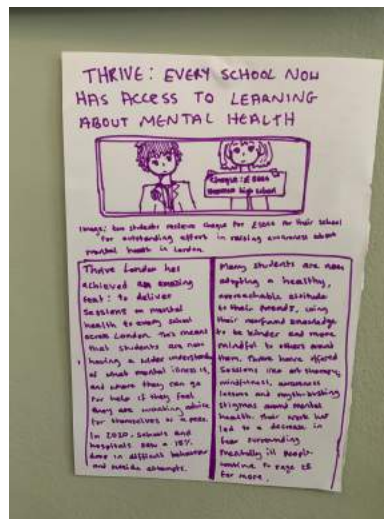 THRIVE: EVERY SCHOOL NOW
HAS ACCESS TO LEARNING
ABOUT MENTAL HEALTH
Cheque: £5000
high school
Image: two students recieve cheque for £5000 for their school
for outstanding effort in raising awareness about
mental health in London.
Thrive London has
achieved an amazing
feat: to deliver
sessions on mental
health to every school
across London. This means
that students are now
having a wider understanding
of what mental illness is,
and where they can go
for help if they feel
they are wanting advice
for themselves or a peer.
In 2020, schools and
hospitals saw a 15%
drop in difficult behaviour
and suicide attempts.
Many students are now
adopting a healthy,
approachable attitude
to their friends, using
their newfound knowledge
to be kinder and more
mindful to others around
them. Thrive have offered
sessions like art therapy,
mindfulness, awareness
lessons and myth-busting
stigmas around mental
health. Their work has
led to a decrease in
fear surrounding
mentally ill people.
continue to page 28
for more.